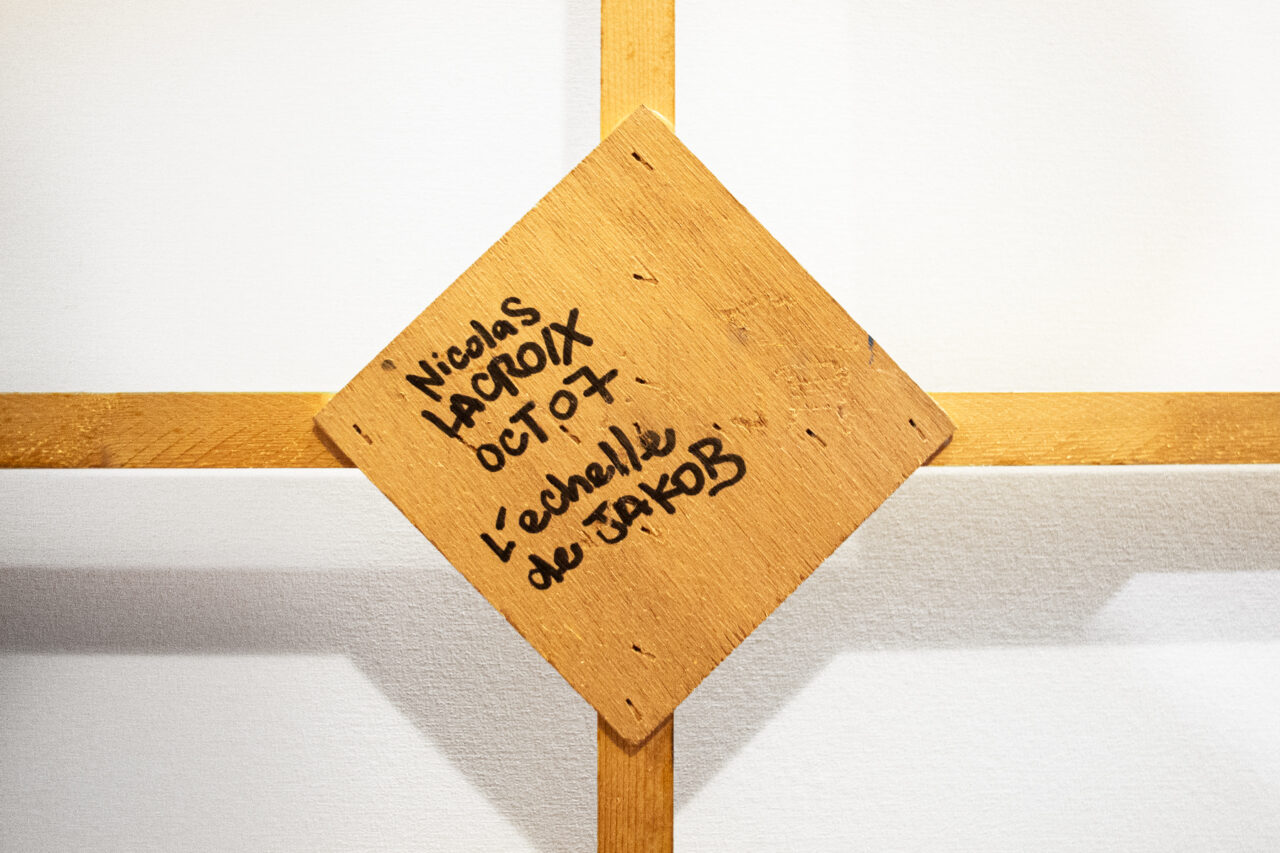 Nicolas
LACROIX
OCT 07
L'echelle
de JAKOB